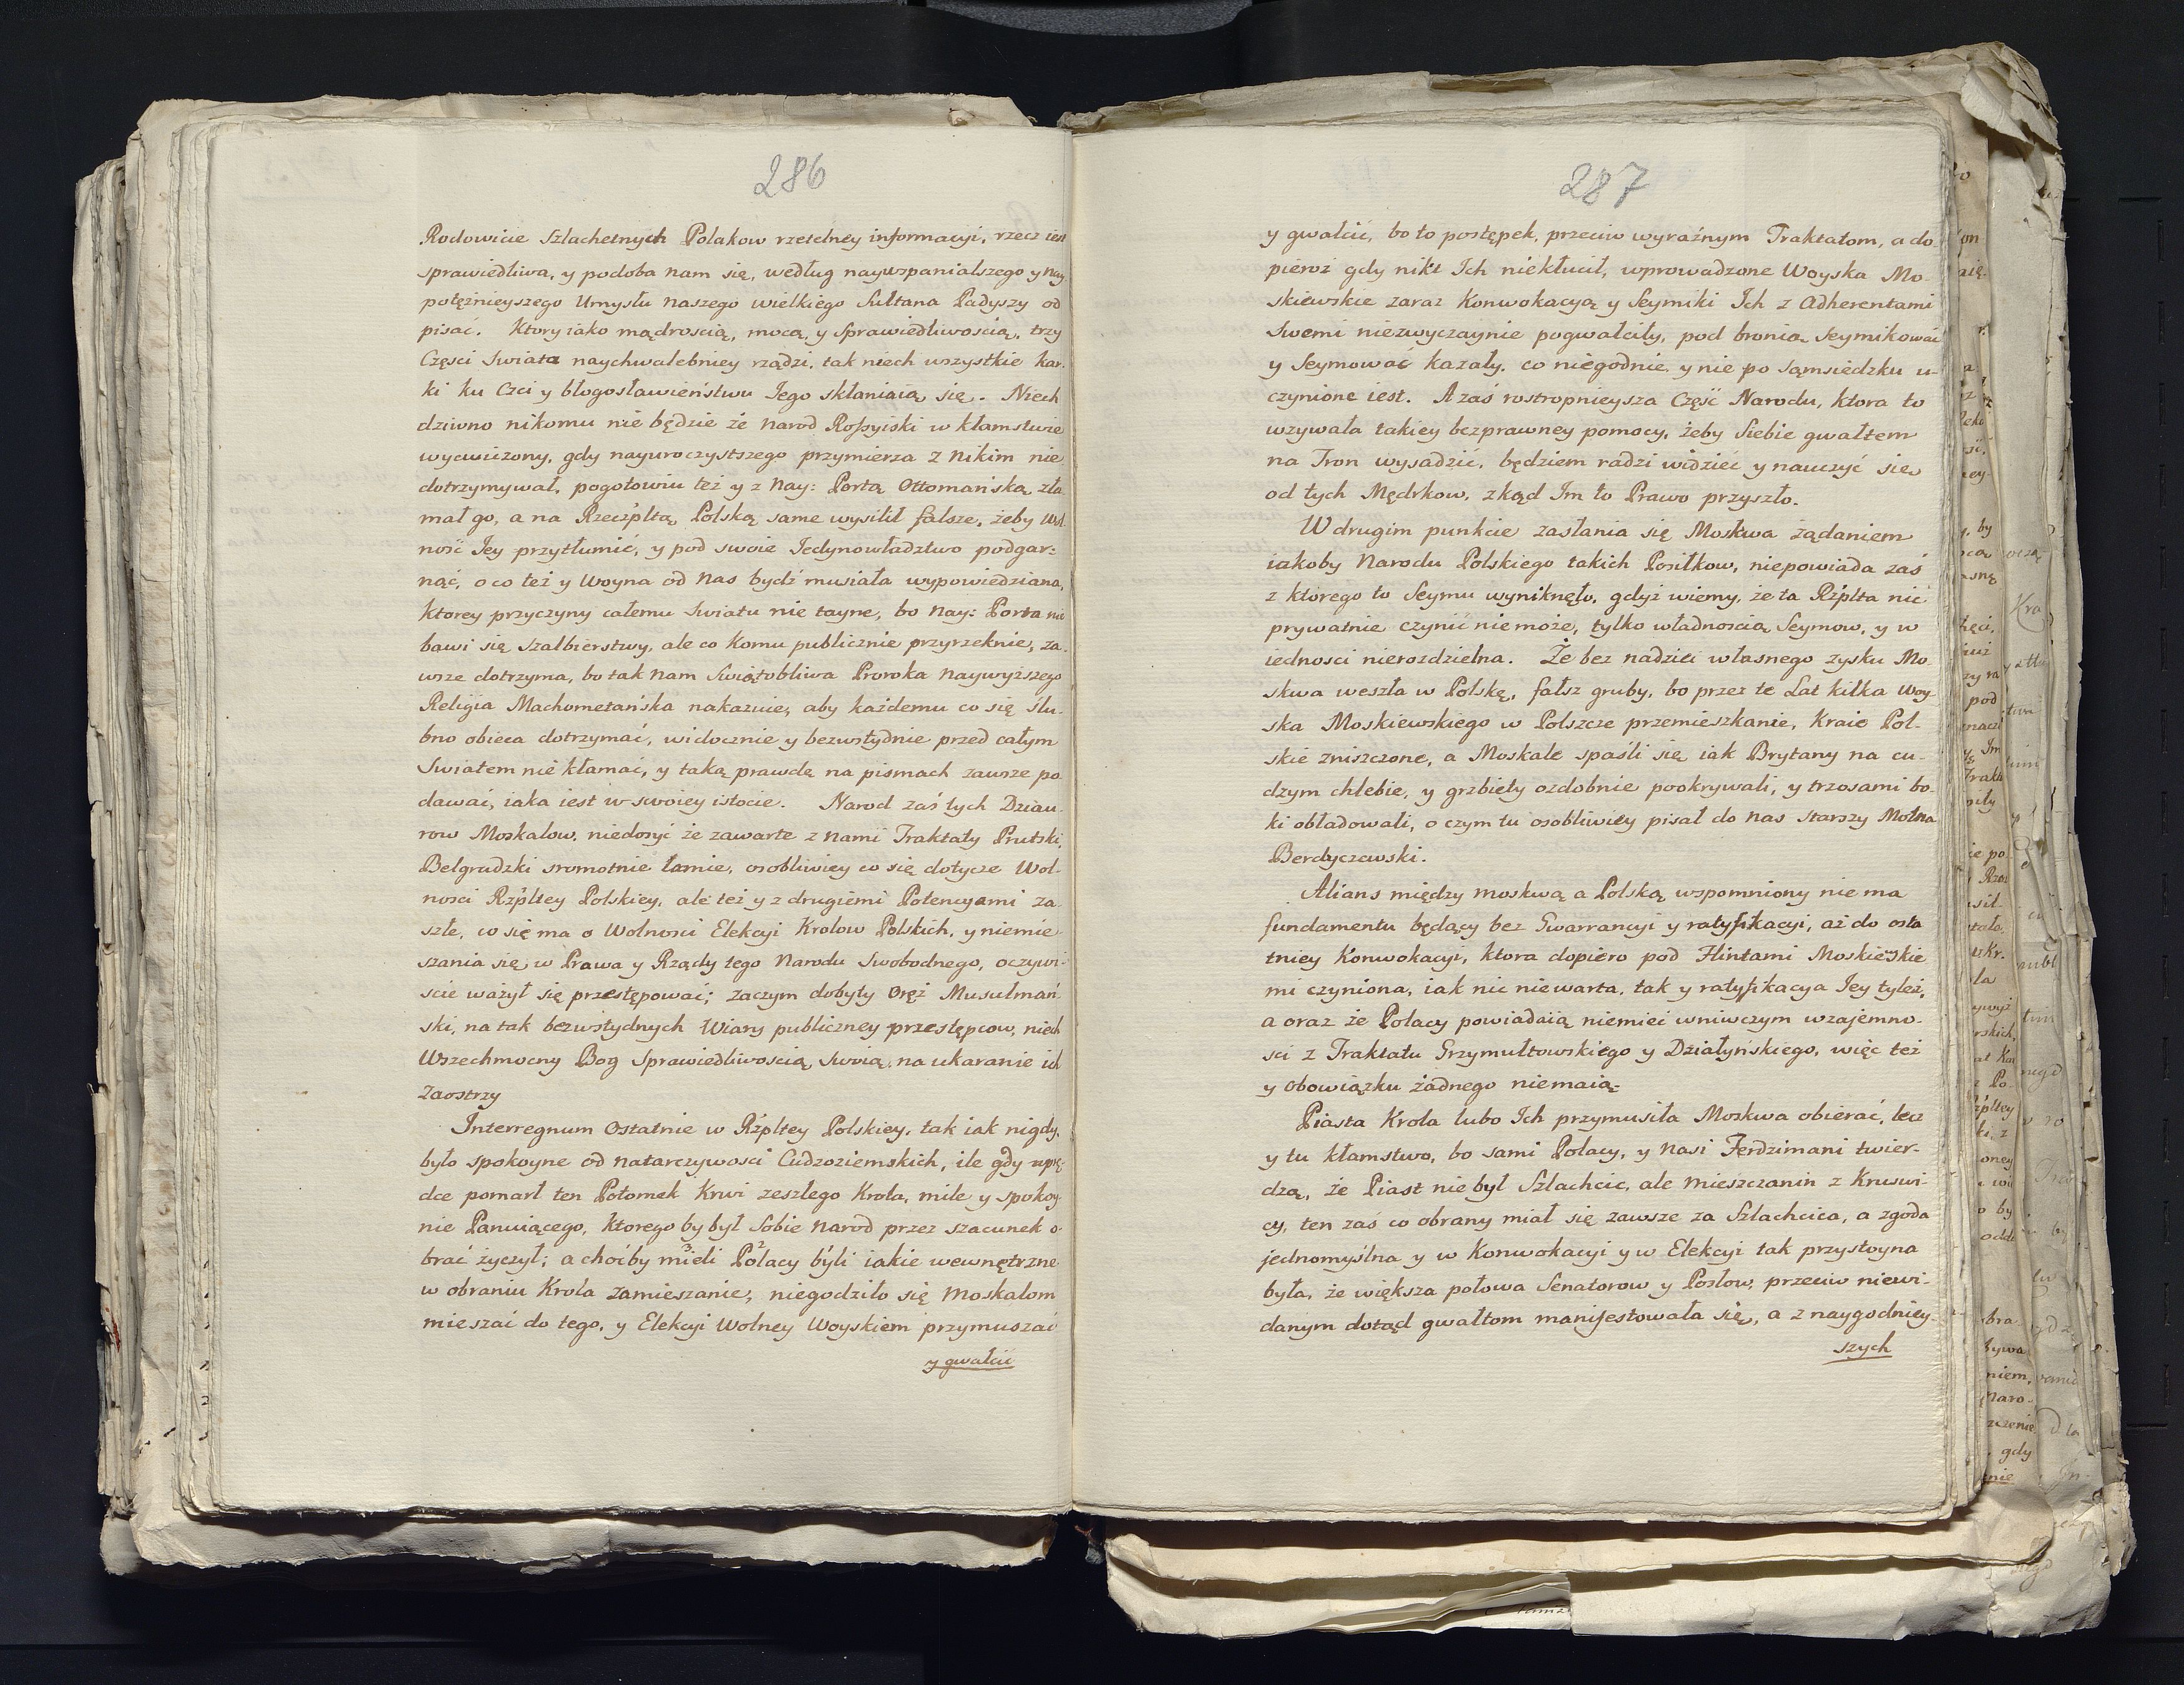 286
Rodowicie Szlachetnych Polakow rzetelney informacyi, rzecz iest
sprawiedliwa, y podoba nam się, według naywspanialszego y nay
potężnieyszego Umysłu naszego wielkiego Sułtana Padyszy od
pisać. Ktory iako mądroscią, mocą, y Sprawiedliwoscią, trzy
Częsci Swiata naychwalebniey rządzi, tak niech wszystkie kar-
ki ku Czci y błogosławieństwu Jego skłaniaią się. Niech
dziwno nikomu nie będzie że Narod Rossyiski w kłamstwie
wycwiczony, gdy nayuroczystszego przymierza z Nikim nie
dotrzymywał, pogotowiu też y z Nay: Portą Ottomańską zła
mał go, a na Rzeczpltą Polską same wysilił fałsze, żeby Wol
ność Jey przytłumić, y pod swoie Jedynowładztwo podgar-
nąć, o co też y Woyna od Nas bydź musiała wypowiedziana,
ktorey przyczyny całemu Swiatu nie tayne, bo Nay: Porta nie
bawi się Szalbierstwy, ale co Komu publicznie przyrzeknie, za-
wsze dotrzyma, bo tak Nam Swiątobliwa Proroka Naywyższego
Religia Machometańska nakazuie, aby każdemu co się ślu-
bno obieca dotrzymać, widocznie y bezwstydnie przed całym
Swiatem nie kłamać, y taką prawdę na pismach zawsze po
dawać, iaka iest w swoiey istocie. Narod zaś tych Dziau-
row Moskalow, niedosyć że zawarte z nami Traktaty Prutski,
Belgradzki sromotnie łamie, osobliwiey co się dotycze Wol-
nosci Rzpltey Polskiey, ale też y z drugiemi Potencyami za-
szłe, co się ma o Wolnosci Elekcyi Krolow Polskich, y niemie-
szania się w Prawa y Rządy tego Narodu Swobodnego, oczywi-
scie ważył się przestępować; zaczym dobyty Oręż Musułmań
ski, na tak bezwstydnych Wiary publiczney przestępcow, niech
Wszechmocny Bog Sprawiedliwoscią Swoią na ukaranie ich
Zaostrzy
Interregnum Ostatnie w Rzpltey Polskiey, tak iak nigdy,
było spokoyne od Natarczywosci Cudzoziemskich, ile gdy wprę-
dce pomarł ten Potomek Krwi zeszłego Krola, mile y spokoy
nie Panuiącego, ktorego by był Sobie Narod przez szacunek o-
brać życzył; a choćby mieli 3 Polacy 2 byli iakie wewnętrzne
w obraniu Krola zamieszanie, niegodziło się Moskalom
mieszać do tego, y Elekcyi Wolney Woyskiem przymuszać
y gwałcić
287
y gwałcić, bo to postępek, przeciw wyraźnym Traktatom, a do-
pieroż gdy nikt Ich niekłucił, wprowadzone Woyska Mo-
skiewskie zaraz Konwokacyą y Seymiki Ich z Adherentami
Swemi niezwyczaynie pogwałciły, pod bronią Seymikować
y Seymować kazały, co niegodnie, y nie po Sąmsiedzku u-
czynione iest. A zaś rostropnieysza Część Narodu, ktora to
wzywała takiey bezprawney pomocy, żeby Siebie gwałtem
na Tron wysadzić, będziem radzi widzieć y nauczyć się
od tych Mędrkow, zkąd Im to Prawo przyszło.
W drugim punkcie zasłania się Moskwa żądaniem
iakoby Narodu Polskiego takich Posiłkow, niepowiada zaś
z ktorego to Seymu wyniknęło, gdyż wiemy, że ta Rzplta nic
prywatnie czynić nie może, tylko władnoscią Seymow, y w
iednosci nierozdzielna. Że bez nadziei własnego zysku Mo-
skwa weszła w Polskę, fałsz gruby, bo przez te Lat kilka Woy-
ska Moskiewskiego w Polszcze przemieszkanie, Kraie Pol-
skie zniszczone, a Moskale spaśli się iak Brytany na cu-
dzym chlebie, y grzbiety ozdobnie pookrywali, y trzosami bo-
ki obładowali, o czym tu osobliwiey pisał do Nas Starszy Mołna
Berdyczewski.
Alians między Moskwą a Polską wspomniony nie ma
fundamentu będący bez Gwarrancyi y ratyfikacyi, aż do osta
tniey Konwokacyi, ktora dopiero pod Flintami Moskiewskie
mi czyniona, iak nic niewarta, tak y ratyfikacya Jey tyleż,
a oraz że Polacy powiadaią niemieć wniwczym wzajemno-
sci z Traktatu Grzymułtowskiego y Działyńskiego, więc też
y obowiązku żadnego niemaią.
Piasta Krola lubo Ich przymusiła Moskwa obierać, lecz
y tu kłamstwo, bo sami Polacy, y Nasi Ferdzimani twier-
dzą, że Piast nie był Szlachcic, ale Mieszczanin z Kruswi-
cy, ten zaś co obrany miał się zawsze za Szlachcica, a zgoda
jednomyślna y w Konwokacyi y w Elekcyi tak przystoyna
była, że większa połowa Senatorow y Posłow, przeciw niewi-
danym dotąd gwałtom manifestowała się, a z naygodniey-
szych